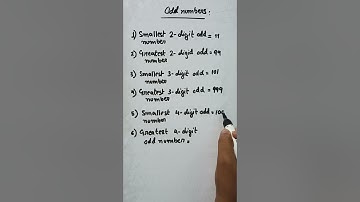 Odd numbers.
1) Smallest 2-digit odd = 11
number
2) Greatest 2-digit odd = 99
number
3) Smallest 3-digit odd = 101
number
4) Greatest 3-digit odd = 999
number
5) Smallest 4-digit odd = 100
number
6) Greatest 4-digit
odd number =